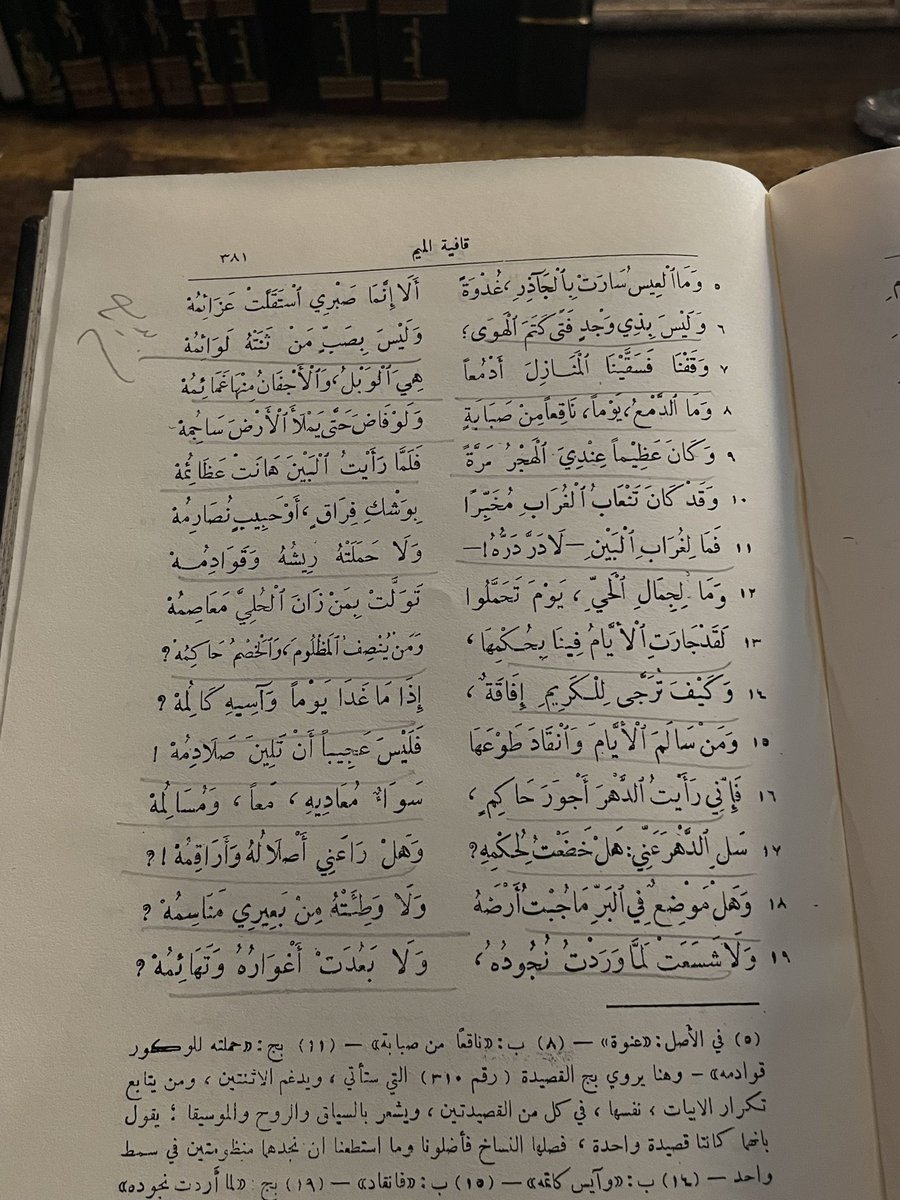 قافية الميم ٣٨١
٥ وَمَا ٱلْعِيسُ سَارَتْ بِٱلْجَآذِرِ، غُدْوَةً أَلَا إِنَّمَا صَبْرِي ٱسْتَقَلَّتْ عَزَائِمُهْ
٦ وَلَيْسَ بِذِي وَجْدٍ فَتًى كَتَمَ ٱلْهَوَى، وَلَيْسَ بِصَبٍّ مَنْ ثَنَتْهُ لَوَائِمُهْ
٧ وَقَفْنَا فَسَقَّيْنَا ٱلْمَنَازِلَ أَدْمُعاً هِيَ ٱلْوَبْلُ، وَٱلْأَجْفَانُ مِنْهَا غَمَائِمُهْ
٨ وَمَا ٱلدَّمْعُ، يَوْماً، نَاقِعاً مِنْ صَبَابَةٍ وَلَوْ فَاضَ حَتَّى يَمْلَأَ ٱلْأَرْضَ سَاجِمُهْ
٩ وَكَانَ عَظِيماً عِنْدِيَ ٱلْهَجْرُ مَرَّةً فَلَمَّا رَأَيْتُ ٱلْبَيْنَ هَانَتْ عَظَائِمُهْ
١٠ وَقَدْ كَانَ تَنْعَابُ ٱلْغُرَابِ مُخَبِّرًا بِوَشْكِ فِرَاقٍ، أَوْ حَبِيبٍ نُصَارِمُهْ
١١ فَمَا لِغُرَابِ ٱلْبَيْنِ – لَا دَرَّ دَرُّهُ! – وَلَا حَمَلَتْهُ رِيشُهُ وَقَوَادِمُهْ
١٢ وَمَا لِجِمَالِ ٱلْحَيِّ، يَوْمَ تَحَمَّلُوا تَوَلَّتْ بِمَنْ زَانَ ٱلْحُلِيَّ مَعَاصِمُهْ
١٣ لَقَدْ جَارَتِ ٱلْأَيَّامُ فِينَا بِحُكْمِهَا، وَمَنْ يُنْصِفُ ٱلْمَظْلُومَ، وَٱلْخَصْمُ حَاكِمُهْ؟
١٤ وَكَيْفَ تُرَجَّى لِلْكَرِيمِ إِفَاقَةٌ، إِذَا مَا غَدَا يَوْماً وَآسِيهِ كَالِمُهْ؟
١٥ وَمَنْ سَالَمَ ٱلْأَيَّامَ وَٱنْقَادَ طَوْعَهَا فَلَيْسَ عَجِيباً أَنْ تَلِينَ صَلَادِمُهْ!
١٦ فَإِنِّي رَأَيْتُ ٱلدَّهْرَ أَجْوَرَ حَاكِمٍ، سَوَاءٌ مُعَادِيهِ، مَعاً، وَمُسَالِمُهْ
١٧ سَلِ ٱلدَّهْرَ عَنِّي: هَلْ خَضَعْتُ لِحُكْمِهِ؟ وَهَلْ رَاعَنِي أَصْلَالُهُ وَأَرَاقِمُهْ!؟
١٨ وَهَلْ مَوْضِعٌ فِي ٱلْبَرِّ مَا جُبْتُ أَرْضَهُ وَلَا وَطِئَتْهُ مِنْ بَعِيرِي مَنَاسِمُهْ؟
١٩ وَلَا شَسَعَتْ لَمَّا وَرَدْتُ نُجُودُهُ، وَلَا بَعُدَتْ أَغْوَارُهُ وَتَهَائِمُهْ؟
(٥) في الأصل: «عنوة» — (٨) ب: «ناقعًا من صبابة» — (١١) بج: «حملته للوكور
قوادمه» – وهنا يروي بج القصيدة (رقم ٣١٠) التي ستأتي، ويدغم الاثنتين، ومن يتابع
تكرار الابيات، نفسها، في كل من القصيدتين، ويشعر بالسياق والروح والموسيقا؛ يقول
بانهما كانتا قصيدة واحدة، فصلها النساخ فأضلونا وما استطعنا ان نجدهما منظومتين في سمط
واحد — (١٤) ب: «وآيس كاتمه» — (١٥) ب: «فانقاد» — (١٩) بج: «لما أردت نجوده»